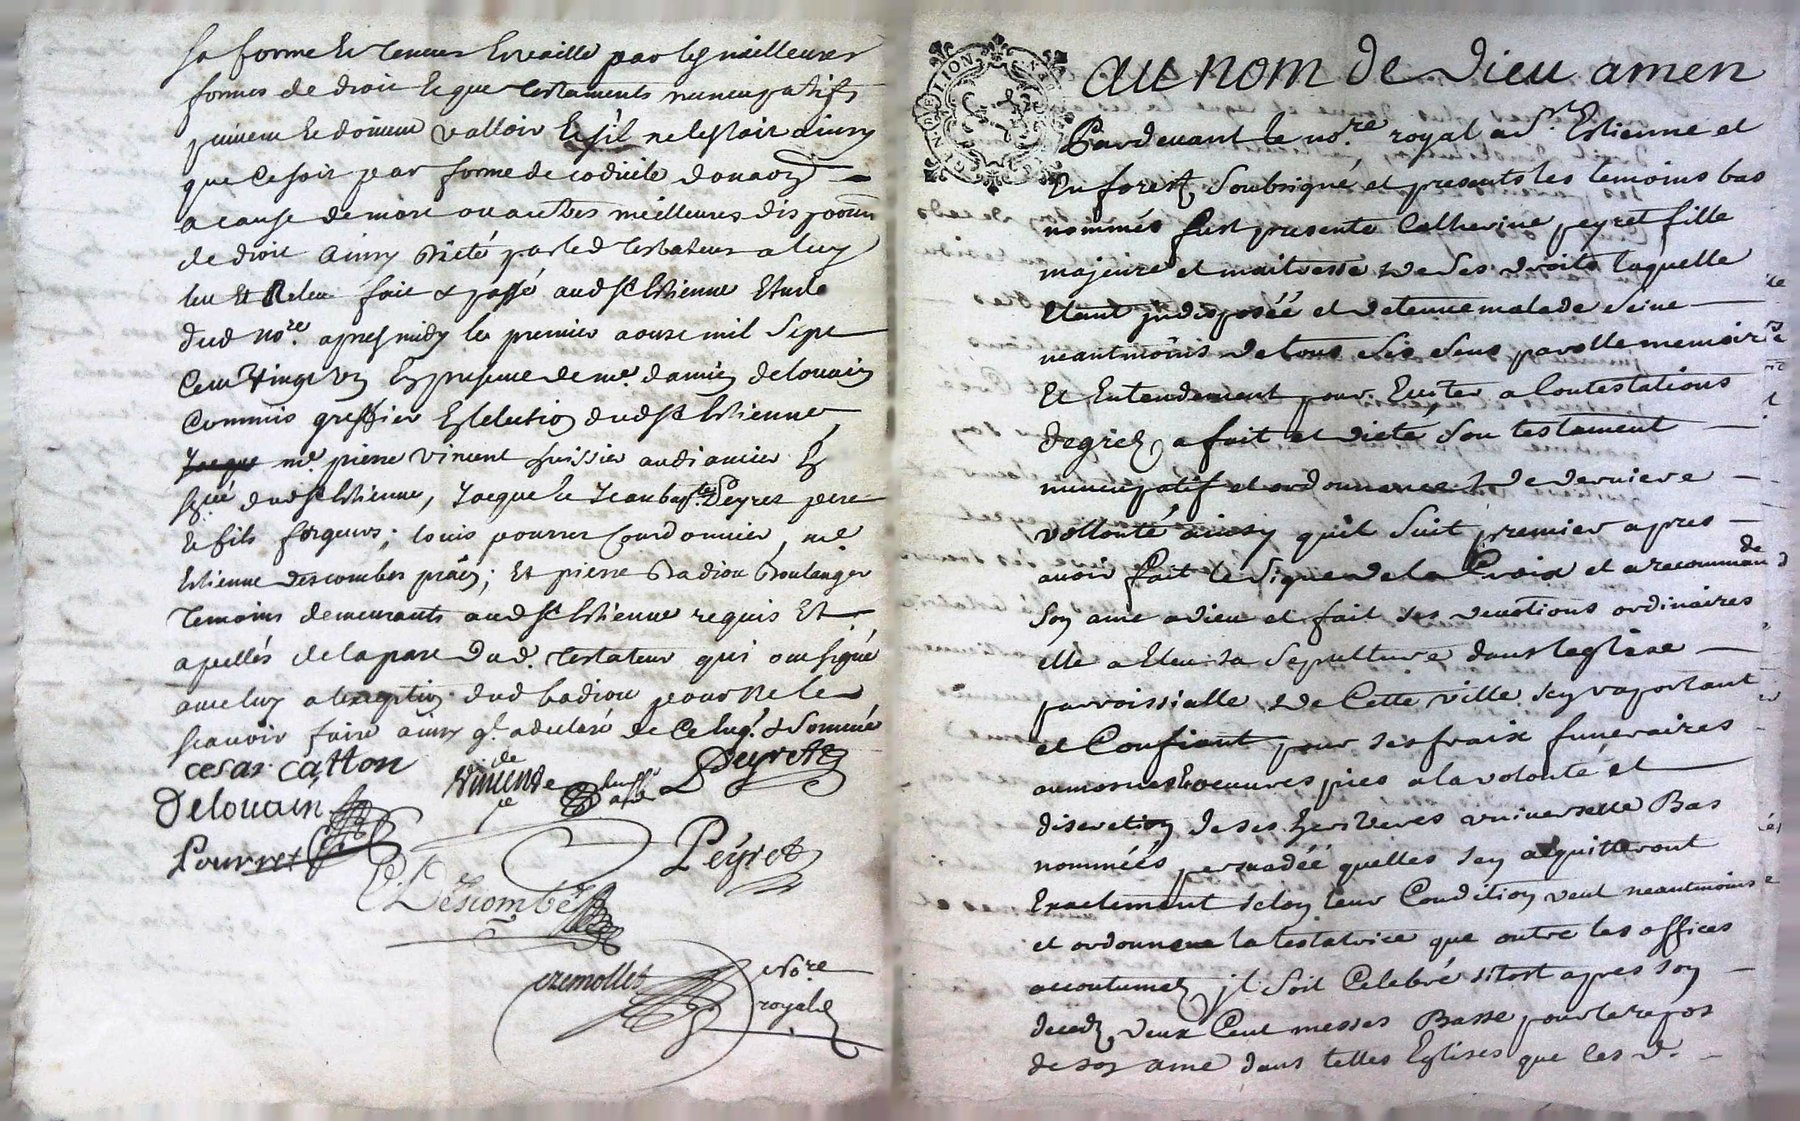 sa forme et teneur et vaille par les meilleures
formes de droit et que testaments nuncupatifs
puivent et doivent valloir et s'il ne lestoit ainsy
que ce soit par forme de codicile donaon
a cause de mort ou autres meilleures dispoons
de droit ainsy dicté par led testateur a luy
leu et releu fait & passé aud st Estienne Etude
dud nore. apres midy le premier aoust mil sept
cent vingt un En presence de me. damien delouain
commis greffier En lelection dud st Estienne,
me. pierre vincent huissier audiancier En
dud st Estienne, Jacque et Jean bapte. Peyret pere
et fils forgeurs; louis pourret Courdonnier, me.
Estienne descombes ; Et pierre Badiou Boulanger
temoins demeurants aud st Estienne requis Et
apellés de la part dud. testateur qui ont signé
avec luy a lexeption dud badiou pour ne le
scavoir faire ainsy q'l a declaré de ce Enq'. & sommé
cesar catton
Delouain
de
Vincent
Peyret
Pourret
Peyret
E. Descombe
cremollet nore
royal
GEN. DE LION
au nom de Dieu amen
Pardevant le nore. royal a St. Estienne et
En forest, soubsigné, et presents les temoins bas
nommés fust presente Catherine peyret fille
majeure et maitresse de ses droits laquelle
Etant indisposéé et detenue malade seine
neantmoins de tous ses sens parolle memoire
Et Entendement pour Eviter a Contestations
de gred, a fait et dicté son testament
nuncupatif et ordonnance de derniere
vollonté ainsy qu'il suit premier apres
avoir fait le signe de la Croix et a recommandé
son ame a dieu et fait ses devotions ordinaires
elle a Eleu sa sepulture dans leglise
parroissialle de Cette ville s'en raportant
et Confiant pour ses fraix funeraires
aumosnes et oeuvres pies a la volonté et
discretion de ses heritieres universelle Bas
nomméés persuadéé quelles s'en aquitteront
Exactement selon leur Condition veut neantmoins
et ordonne la testatrice que outre les offices
accoutumez, il soit Celebré sitost apres son
deced, deux Cent messes Basse pour le repos
de son ame dans telles Eglises que les d.